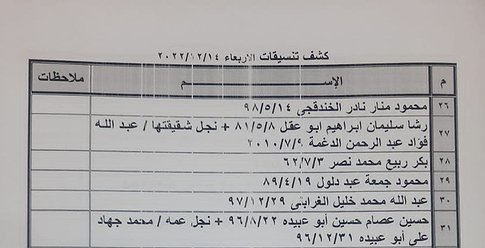 كشف تنسيقات الاربعاء ٢٠٢٢/١٢/١٤
م الإســـــم ملاحظات
٢٦ محمود منار نادر الخندقجي ٩٨/٥/١٤
٢٧ رشا سليمان ابراهيم ابو عقل ٨١/٥/٨ + نجل شقيقتها / عبد الله
فؤاد عبد الرحمن الدغمة ٢٠١٠/٧/٩
٢٨ بكر ربيع محمد نصر ٦٢/٧/٣
٢٩ محمود جمعة عبد دلول ٨٩/٤/١٩
٣٠ عبد الله محمد خليل الغرابنى ٩٧/١٢/٢٩
٣١ حسين عصام حسين أبو عبيده ٩٦/٨/٢٢ + نجل عمه / محمد جهاد
على أبو عبيده ٩٦/١٢/٣١